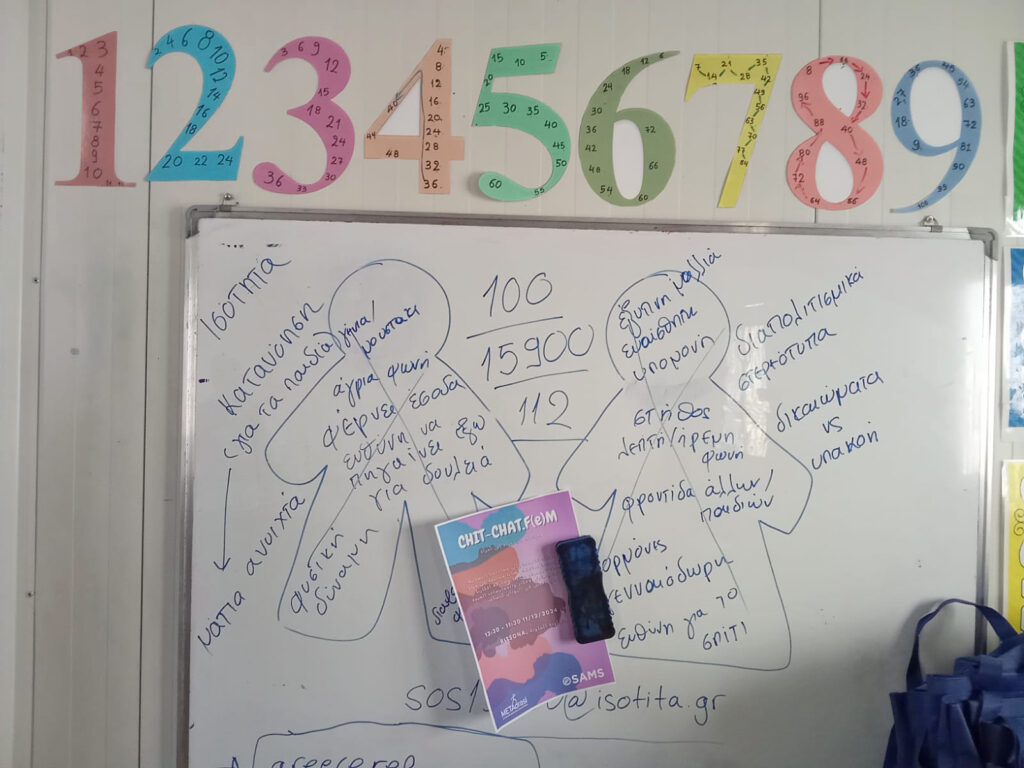 1 2 3
4
5
6
7
8
9
10
2 4 6 8 10
12
14
16
18
20 22 24
3 6 9
12
15
18
21
24
27
30
33
36
4
8
12
16
20
24
28
32
36
40
44
48
5
10
15
20
25 30 35
40
45
50
55
60
6
12
18
24
30
36
42
48
54
60
66
72
7
14
21
28
35
42
49
56
63
70
77
84
8
24
32
40
48
64
72
80
88
96
9
18
27
36
45
54
63
72
81
90
99
Ισότητα
κατανόηση
(για τα παιδιά)
μάτια ανοιχτά
μουστάκι
άγρια φωνή
φέρνει έσοδα
ευθύνη να
πηγαίνει έξω
για δουλειά
φυσική
δύναμη
100
15900
112
έξυπνη μαλλιά
ευαίσθητη
υπομονή
στήθος
λεπτή/ήρεμη
φωνή
φροντίδα άλλων/
παιδιών
ορμόνες
γενναιόδωρη
ευθύνη για το
σπίτι
διαπολιτισμικά
στερεότυπα
δικαιώματα
vs
υπακοή
CHIT-CHAT.F(e)M
11/12/2024
RITSONA
METAdrasi
SAMS
sos1
@isotita.gr